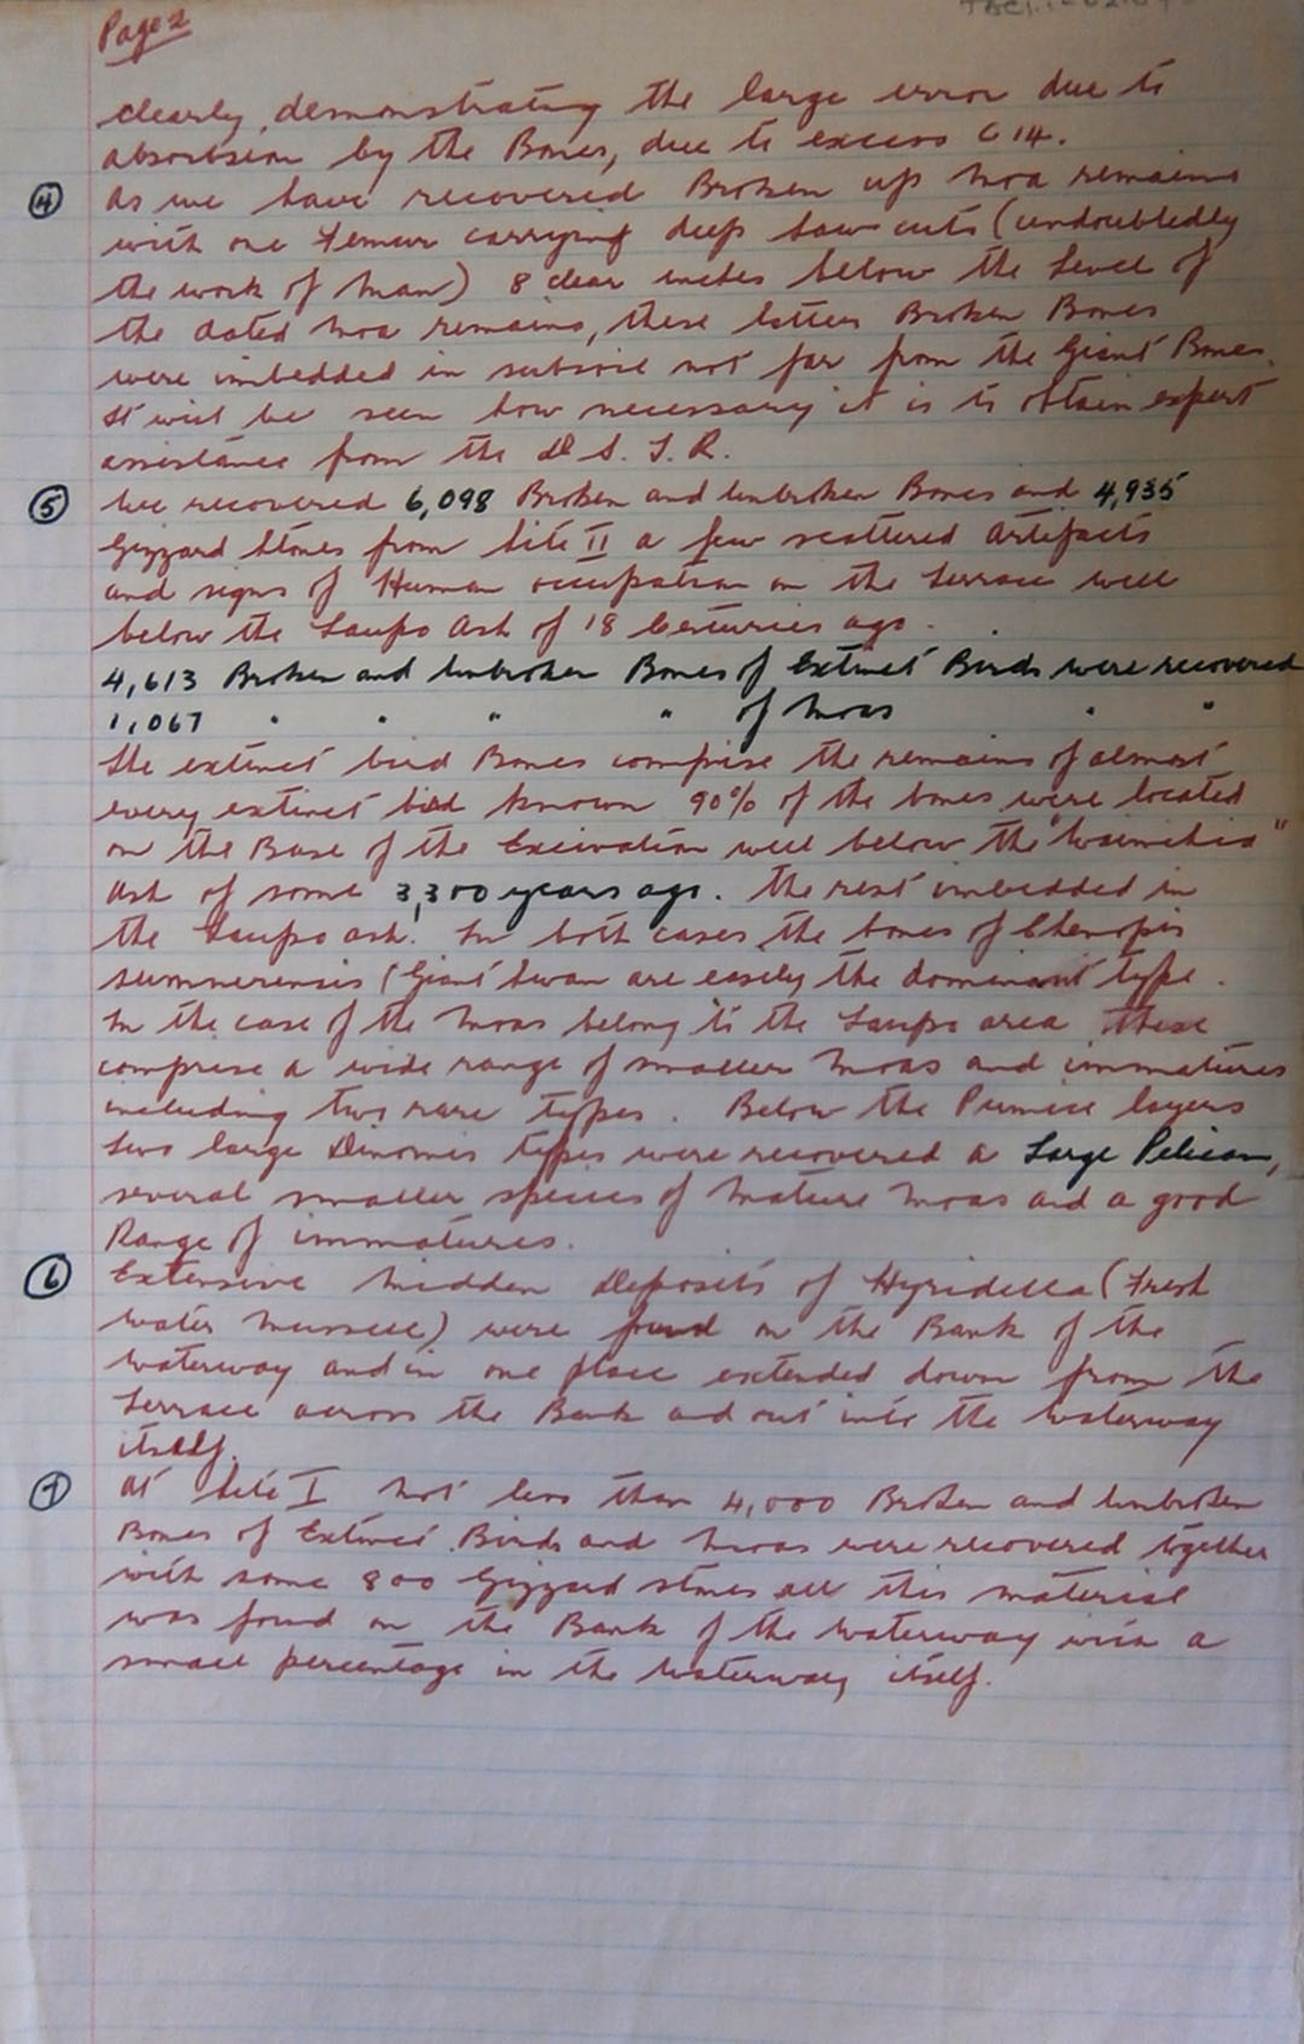 Page 2
clearly demonstrating the large error due to
absorbsion by the Bones, due to excess C 14.
④ As we have recovered Broken up Moa remains
with one Femur carrying deep saw cuts (undoubtedly
the work of Man) 8 clear inches below the Level of
the dated Moa remains, these latter Broken Bones
were imbedded in subsoil not far from the Giant Bones.
It will be seen how necessary it is to obtain expert
assistance from the D. S. I. R.
⑤ We recovered 6,098 Broken and Unbroken Bones and 4,935
Gizzard Stones from Site II a few scattered Artefacts
and signs of Human occupation on the Terrace well
below the Taupo Ash of 18 Centuries ago.
4,613 Broken and Unbroken Bones of Extinct Birds were recovered
1,067 " " " " of Moas " "
The extinct bird Bones comprise the remains of almost
every extinct bird known 90% of the bones were located
on the Base of the Excivation well below the "Waimihia"
Ash of some 3,300 years ago. The rest imbedded in
the Taupo ash. In both cases the bones of Chenopis
sumnerensis (Giant Swan are easily the dominant type.
In the case of the Moas belong to the Taupo area these
comprise a wide range of smaller Moas and immatures
including two rare types. Below the Pumice layers
two large Dinornis types were recovered a Large Pelican,
several smaller species of Mature Moas and a good
Range of immatures.
⑥ Extensive Midden Deposits of Hyridella (Fresh
water Mussell) were found on the Bank of the
Waterway and in one place extended down from the
Terrace across the Bank and out into the Waterway
itself.
⑦ At Site I not less than 4,000 Broken and Unbroken
Bones of Extinct Birds and Moas were recovered together
with some 800 Gizzard stones all this material
was found on the Bank of the Waterway with a
small percentage in the Waterway itself.